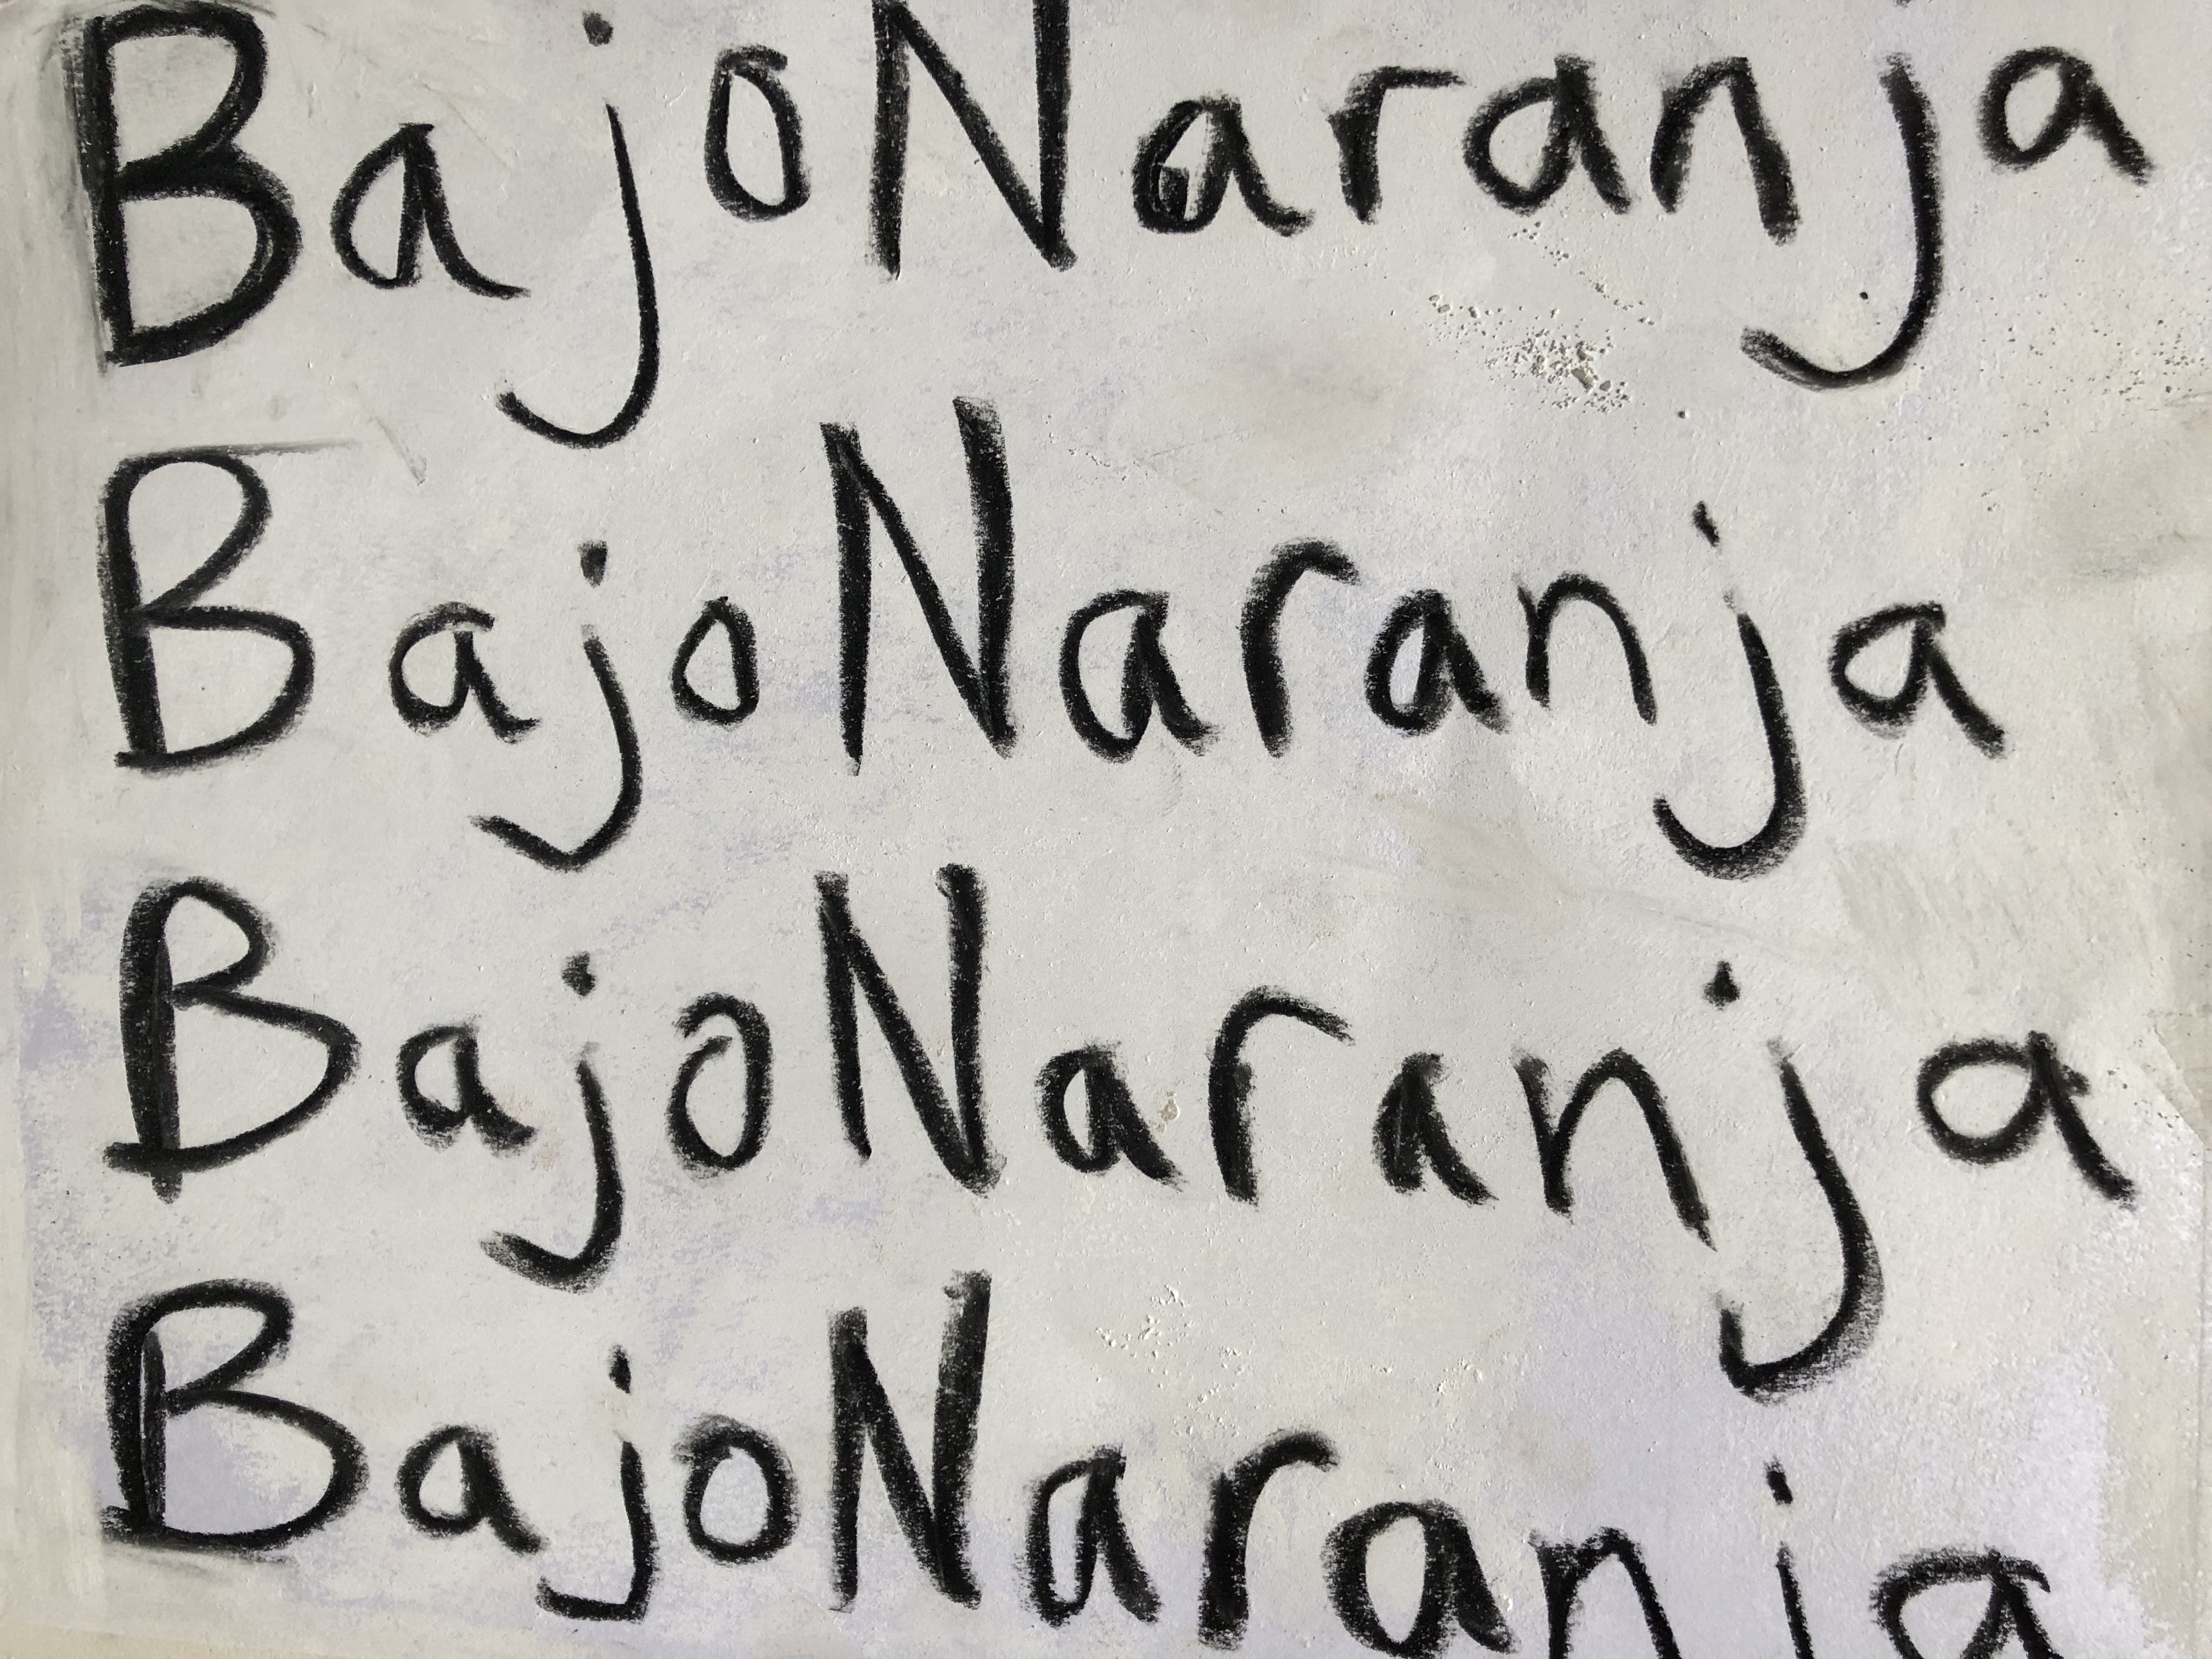 BajoNaranja
BajoNaranja
BajoNaranja
BajoNaranja